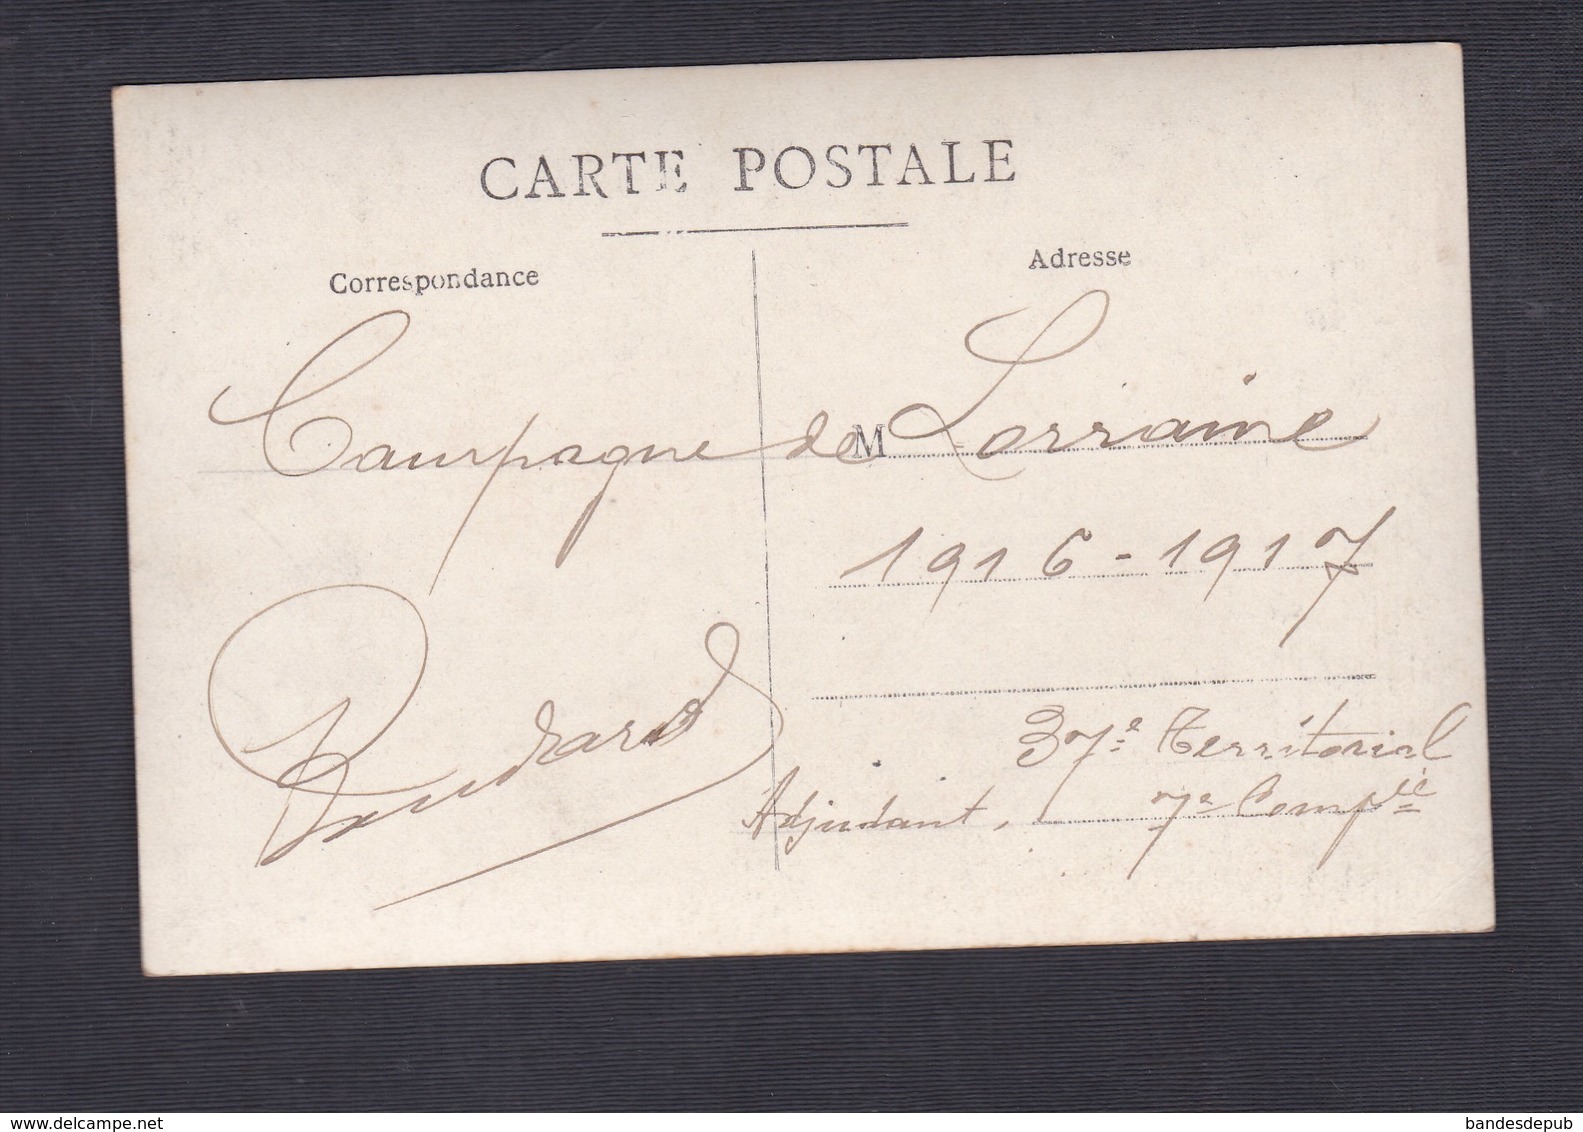 CARTE POSTALE
Correspondance
Adresse
Campagne de M Lorraine
1916-1917
37e Territorial
Adjudant, 7e Compie
bandesdepub